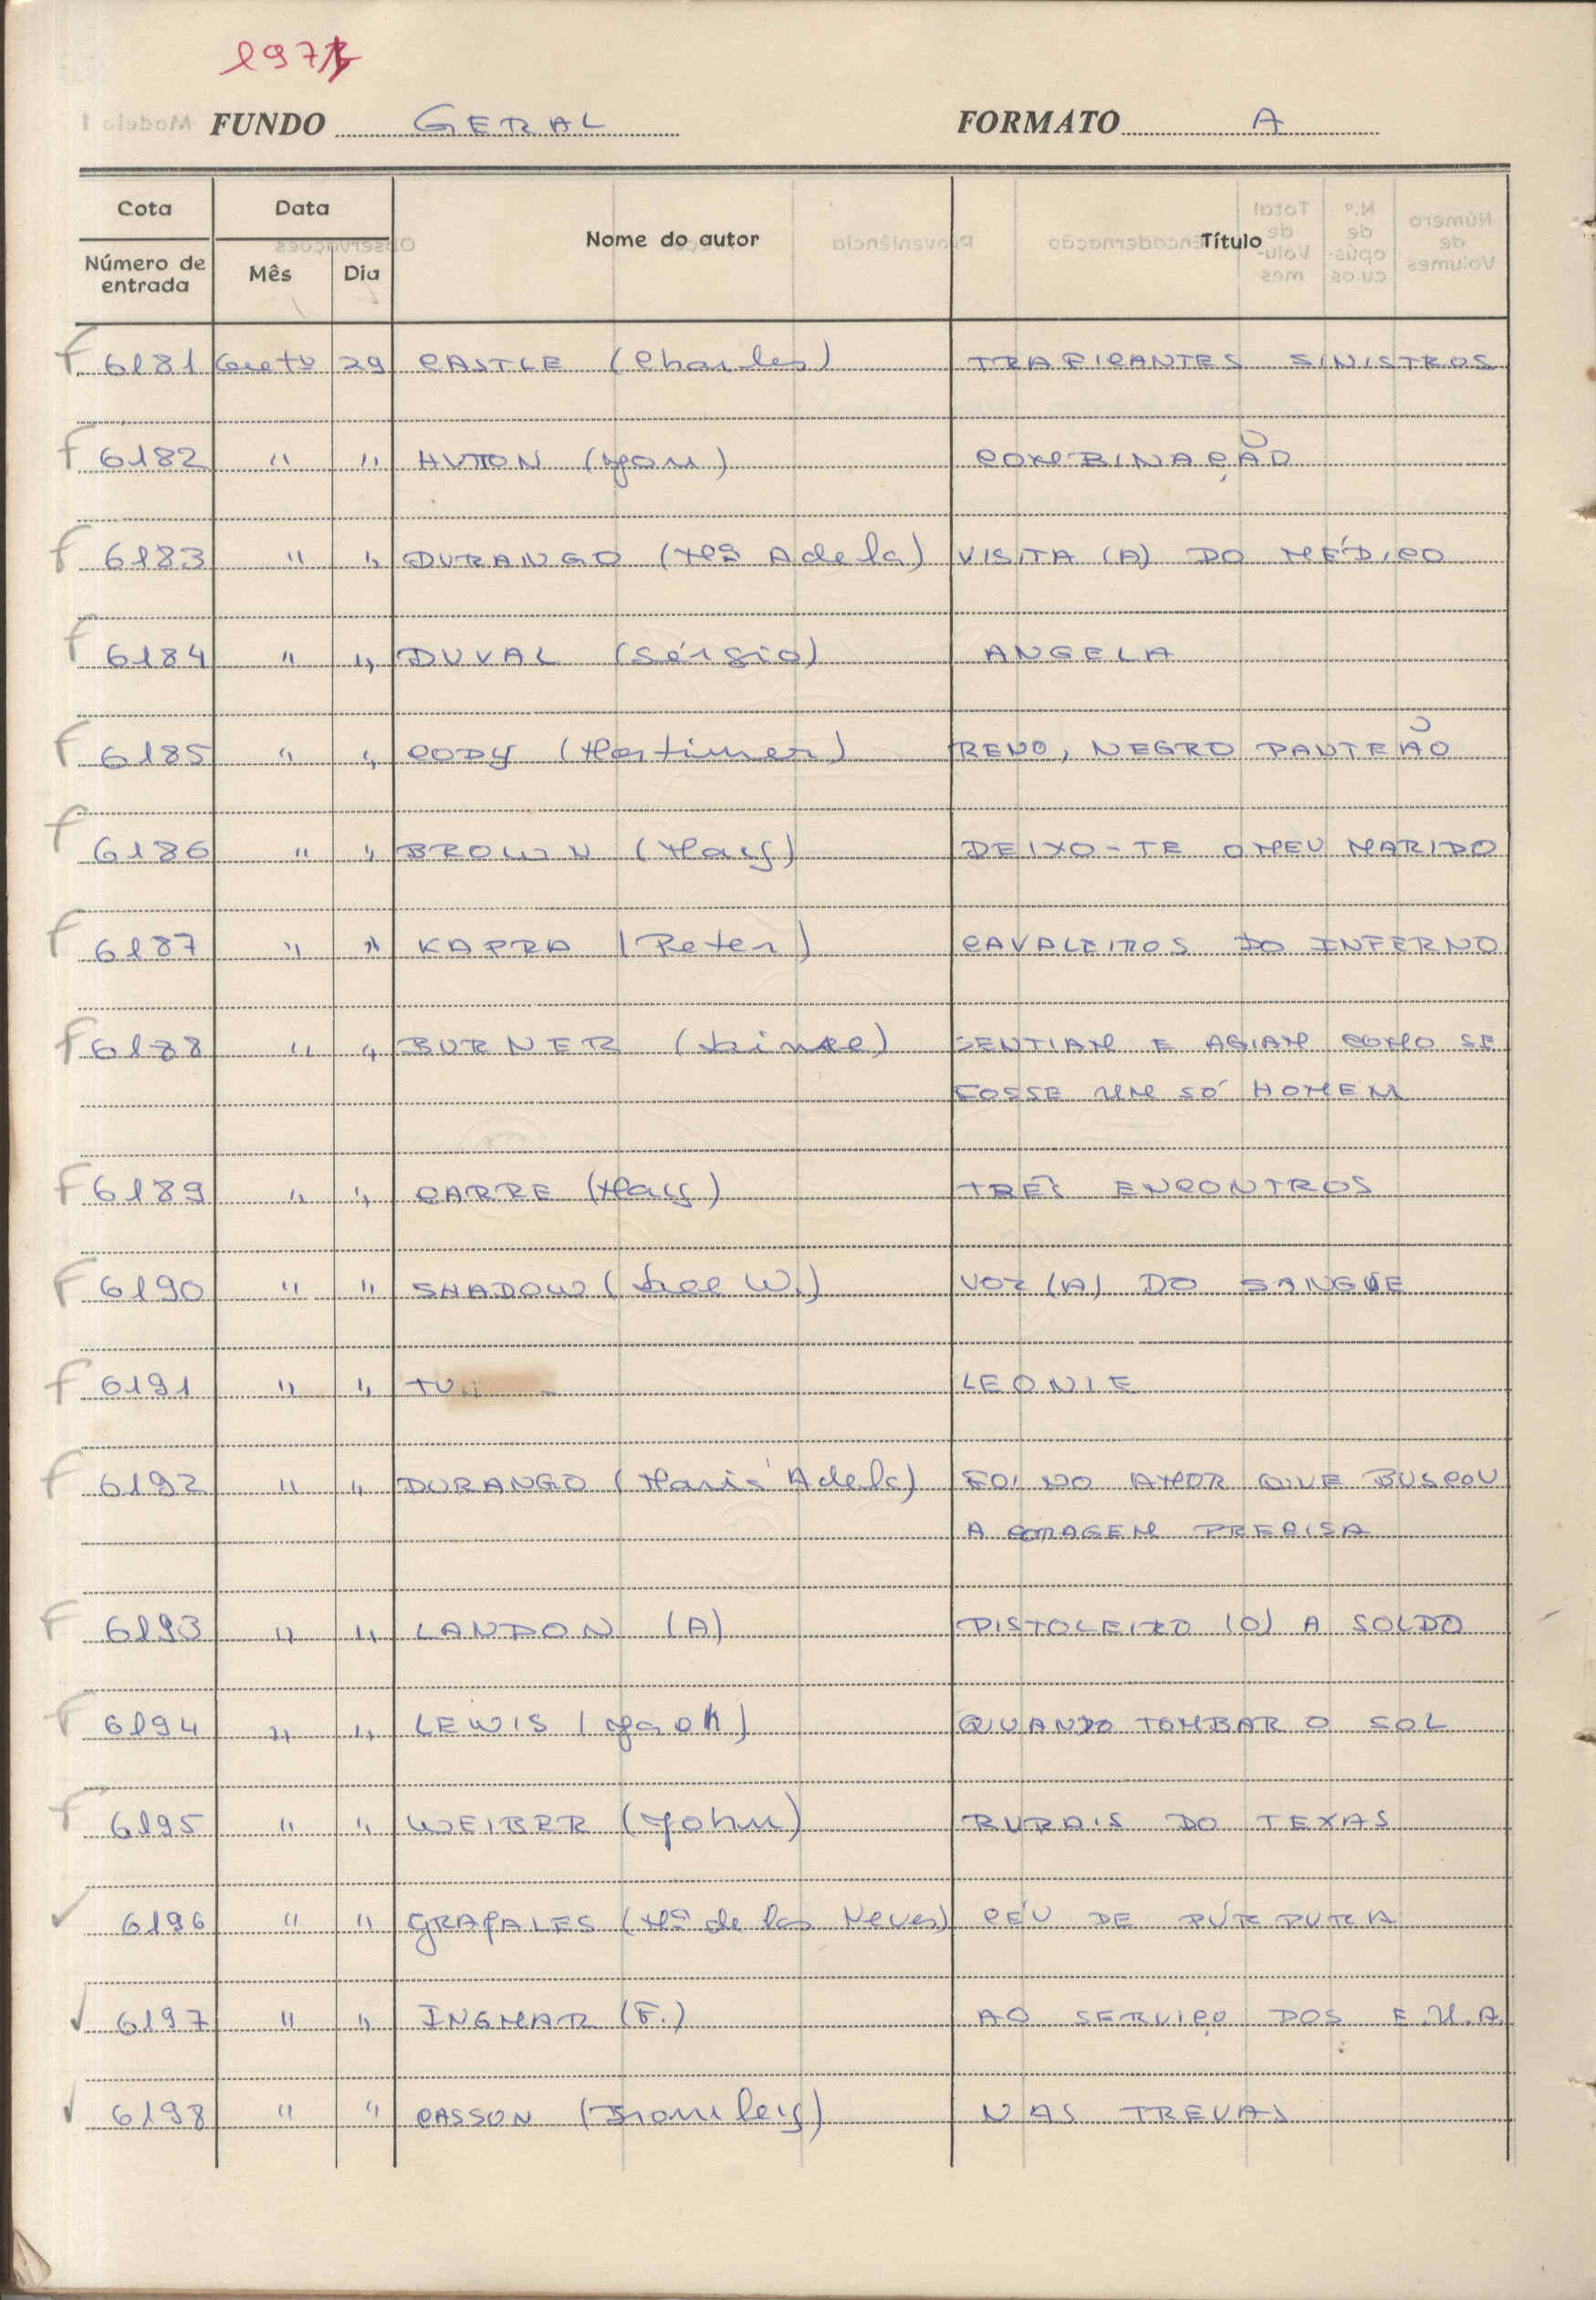 197
FUNDO GERAL FORMATO A
Cota Data Nome do autor Título
Número de entrada Mês Dia
F 6181 29 CASTLE (Charles) TRAFICANTES SINISTROS
F 6182 " " HUTTON (Jon) COMBINAÇÃO
F 6183 " " DURANGO (Mª Adela) VISITA (A) DO MÉDICO
F 6184 " " DUVAL (Sérgio) ANGELA
F 6185 " " CODY (Mortimer) RENO, NEGRO PANTEÃO
F 6186 " " BROWN (May) DEIXO-TE O MEU MARIDO
F 6187 " " KAPRA (Peter) CAVALEIROS DO INFERNO
F 6188 " " BURNER SENTIAM E AGIAM COMO SE
FOSSE UM SÓ HOMEM
F 6189 " " CARRE (May) TRÊS ENCONTROS
F 6190 " " SHADOW (Lee W.) VOZ (A) DO SANGUE
F 6191 " " TU LEONIE
F 6192 " " DURANGO (Maria Adela) FOI NO AMOR QUE BUSCOU
A CORAGEM PRECISA
F 6193 " " LANDON (A) PISTOLEIRO (O) A SOLDO
F 6194 " " LEWIS (Jack) QUANDO TOMBAR O SOL
F 6195 " " WEIBER (John) RURAIS DO TEXAS
✓ 6196 " " (Mª de las Neves) CÉU DE PÚRPURA
✓ 6197 " " INGMAR (F.) AO SERVIÇO DOS E.U.A.
✓ 6198 " " CASSON (Bromley) NAS TREVAS